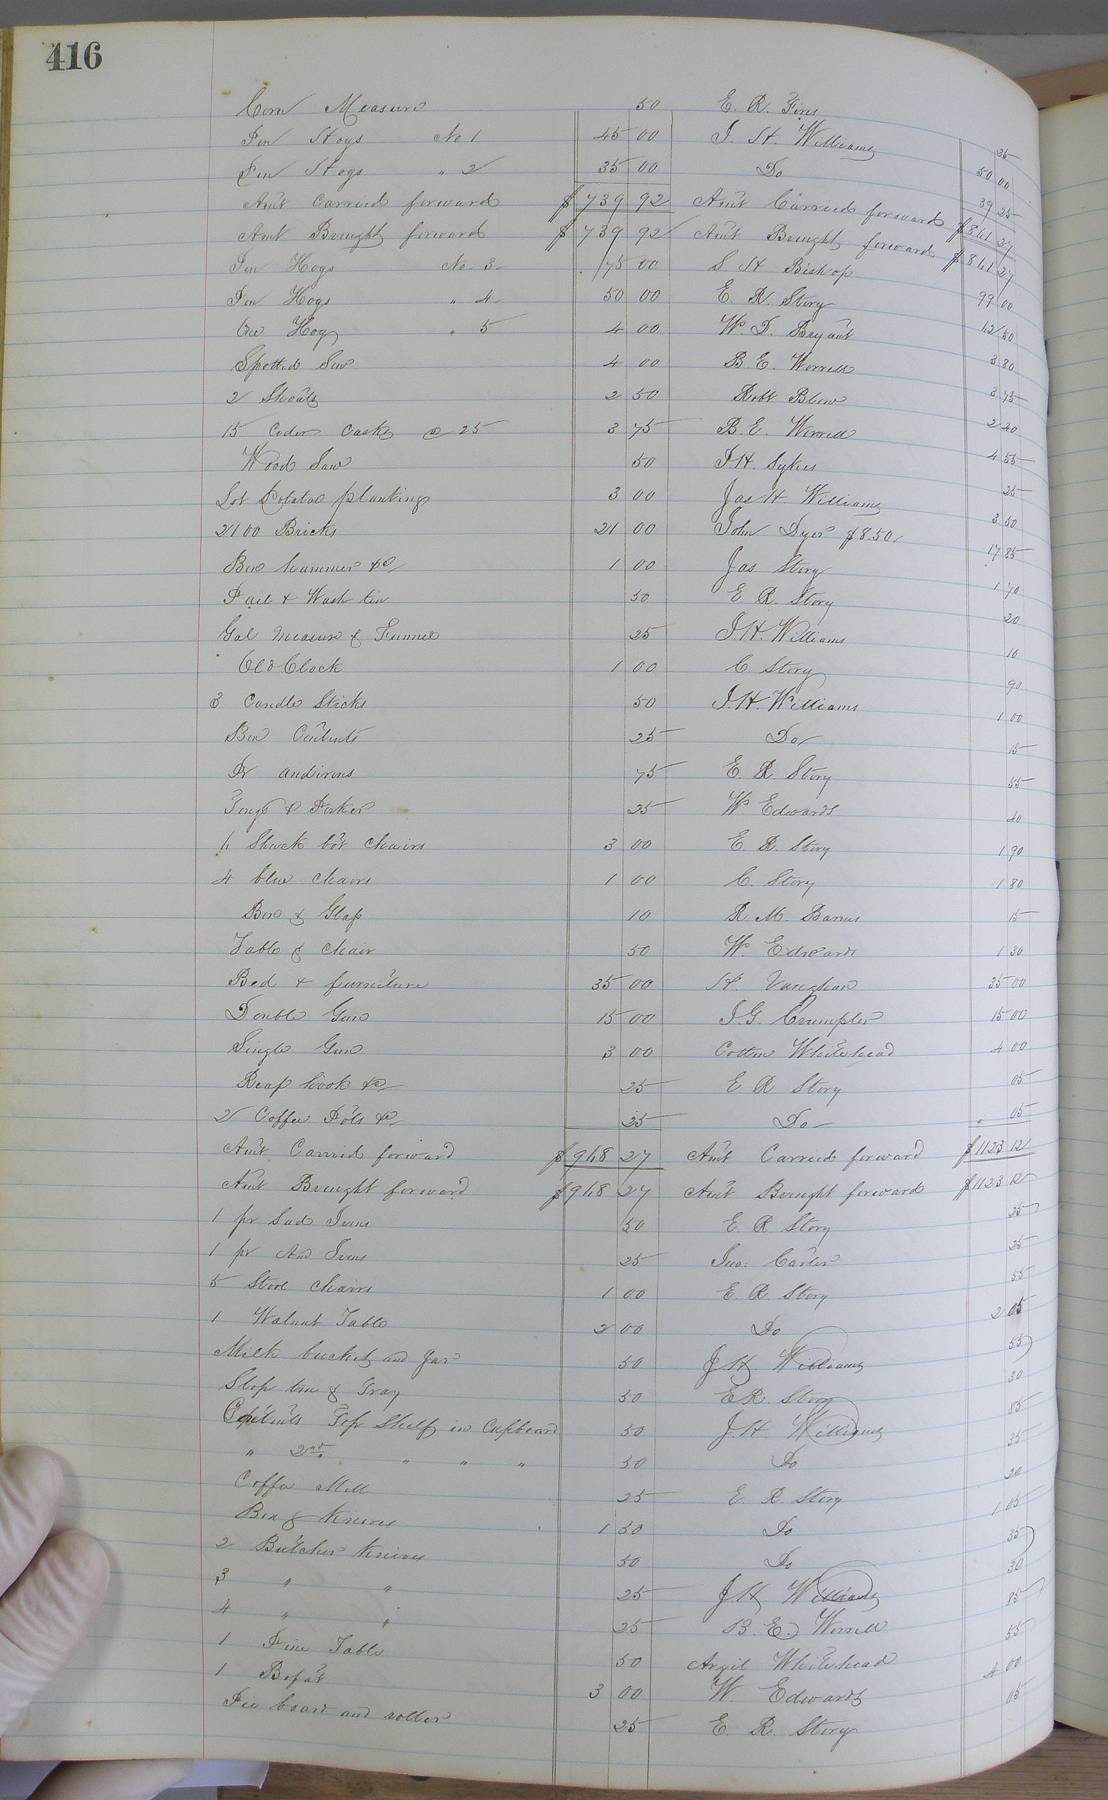 416
Corn Measure 50 E. R. Fires 25
Ten Hogs No 1 45 00 J. H. Williams 50 00
Ten Hogs " 2 35 00 Do 39 25
Am't Carried forward $739 92 Am't Carried forward $861 27
Am't Brought forward $739 92 Am't Brought forward $861 27
Ten Hogs No 3 75 00 S H Bishop 99 00
Ten Hogs " 4 50 00 E. R. Story
One Hog " 5 4 00 W D. Bryant 3 80
Spotted Sow 4 00 B. E. Worrell 3 75
2 Shoats 2 50 Robt Blow 2 40
15 Cider Casks @ 25 3 75 B. E. Worrell 4 55
Wood Saw 50 J. H. Sykes 25
Lot Potatoe planting 3 00 Jas H. Williams 3 50
2100 Bricks 21 00 John Dyer $8.50 17 85
Box hammer &c 1 00 Jas Story 1 70
Pail & Wash tin 50 E R. Story 20
Gal Measure & Funnel 25 J. H. Williams 10
Old Clock 1 00 C Story 90
3 Candle Sticks 50 J. H. Williams 1 00
Box Contents 25 Do 15
Pr andirons 75 E. R. Story 55
Tongs & Poker 25 W Edwards 40
6 Shuck bot chairs 3 00 E. R. Story 1 90
4 blue chairs 1 00 C. Story 1 80
Box & Glass 10 R M. Barnes 15
Table & chair 50 W. Edwards 1 30
Bed & furniture 35 00 H. Vaughan 35 00
Double Gun 15 00 J. G. Crumpler 15 00
Single Gun 3 00 Cotten Whitehead 4 00
Reap hook &c 25 E R Story 05
2 Coffee Pots &c 25 Do 05
Am't Carried forward $968 27 Am't Carried forward $1123 12
Am't Brought forward $968 27 Am't Brought forward $1123 12
1 pr Sad Irons 50 E R Story 25
1 pr And Irons 25 Jno. Carter 25
5 Stool chairs 1 00 E R Story 55
1 Walnut Table 2 00 Do 2 05
Milk bucket and Jar 50 J H Williams 55
Slop tin & Tray 50 E R Story 30
Contents Top Shelf in Cupboard 50 J H Williams 85
" 2nd " " " 50 Do 35
Coffee Mill 25 E. R Story 20
Box & Knives 1 50 Do 1 05
2 Butcher Knives 50 Do 35
3 " " 25 J H Williams 30
4 " " 25 B. E. Worrell 85
1 Pine Table 50 Argil Whitehead 55
1 Bofat 3 00 W Edwards 4 00
Pie board and roller 25 E. R. Story 05